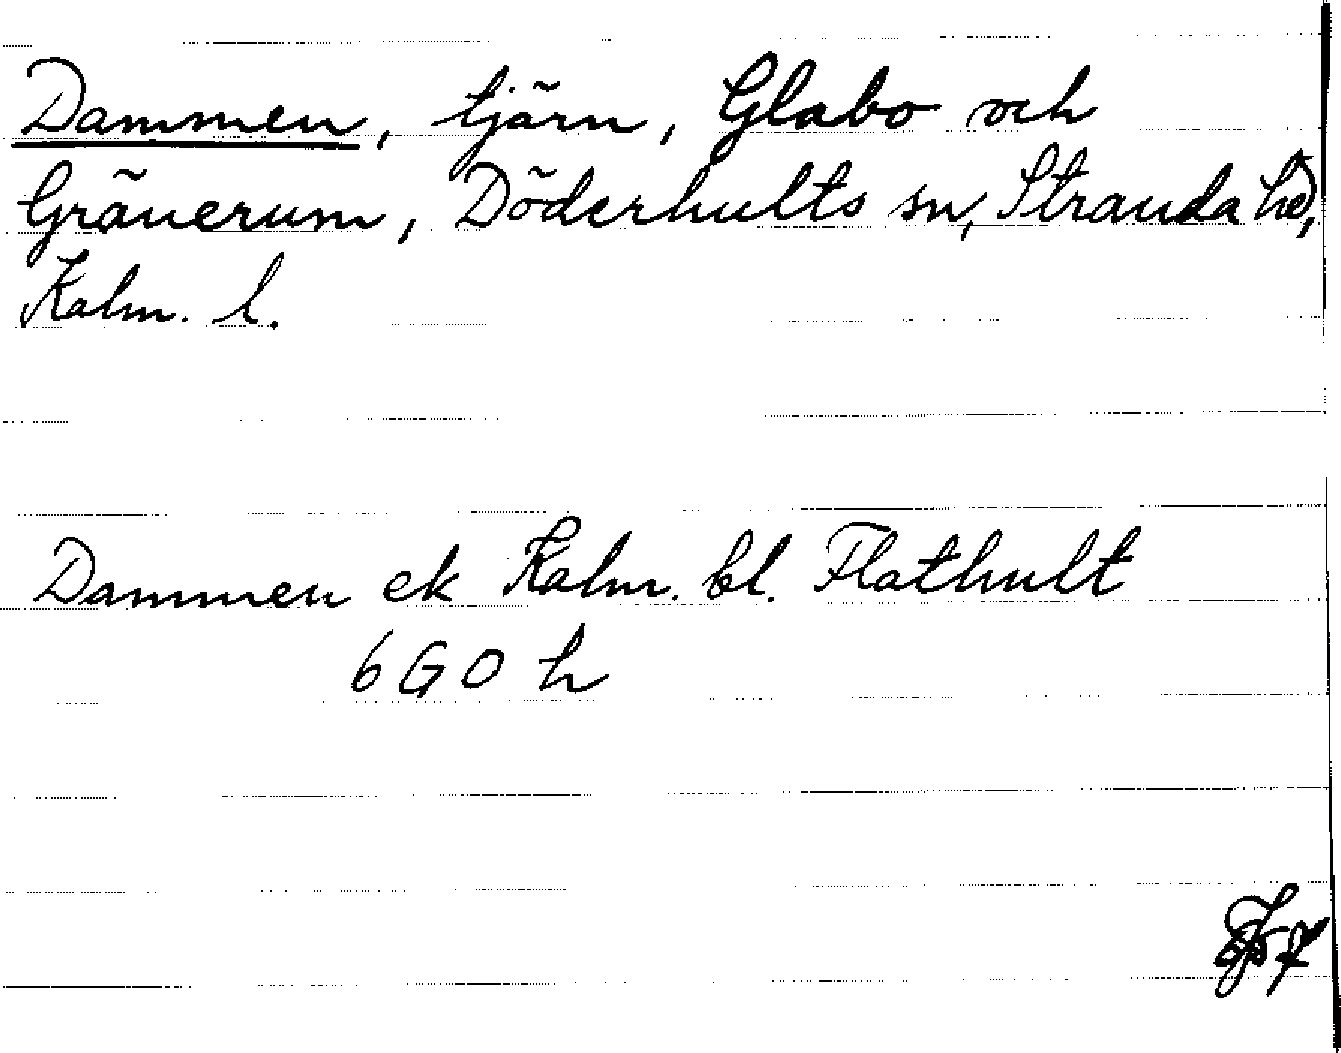 Dammen, tjärn, Glabo och
Gräverum, Döderhults sn, Stranda hd,
Kalm. l.
Dammen ek Kalm. bl. Flathult
6 G O h